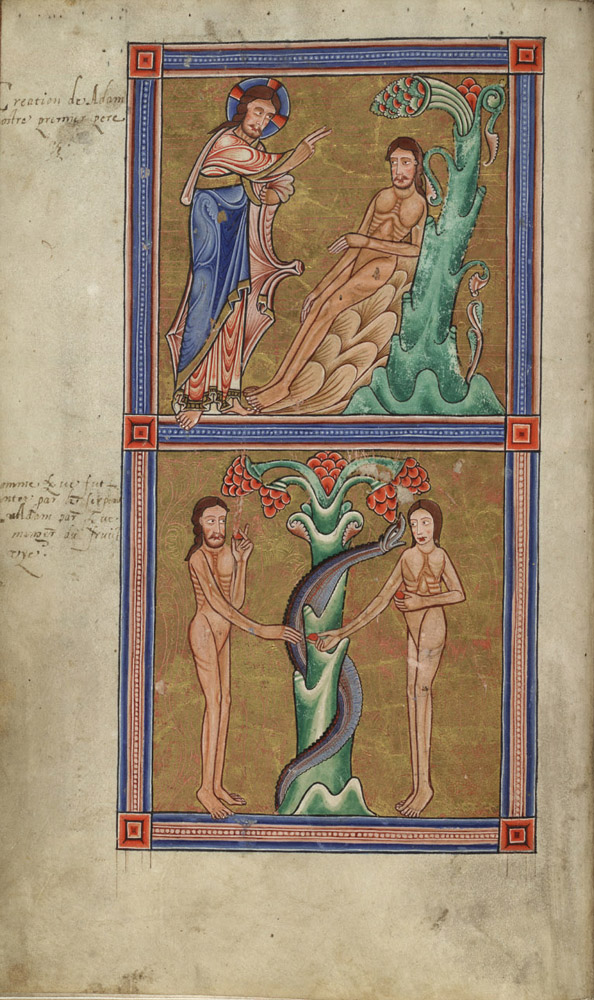 Creation de Adam
nostre premier pere
comme Eve fut
par le serpent
Adam par Eve
manger du fruit